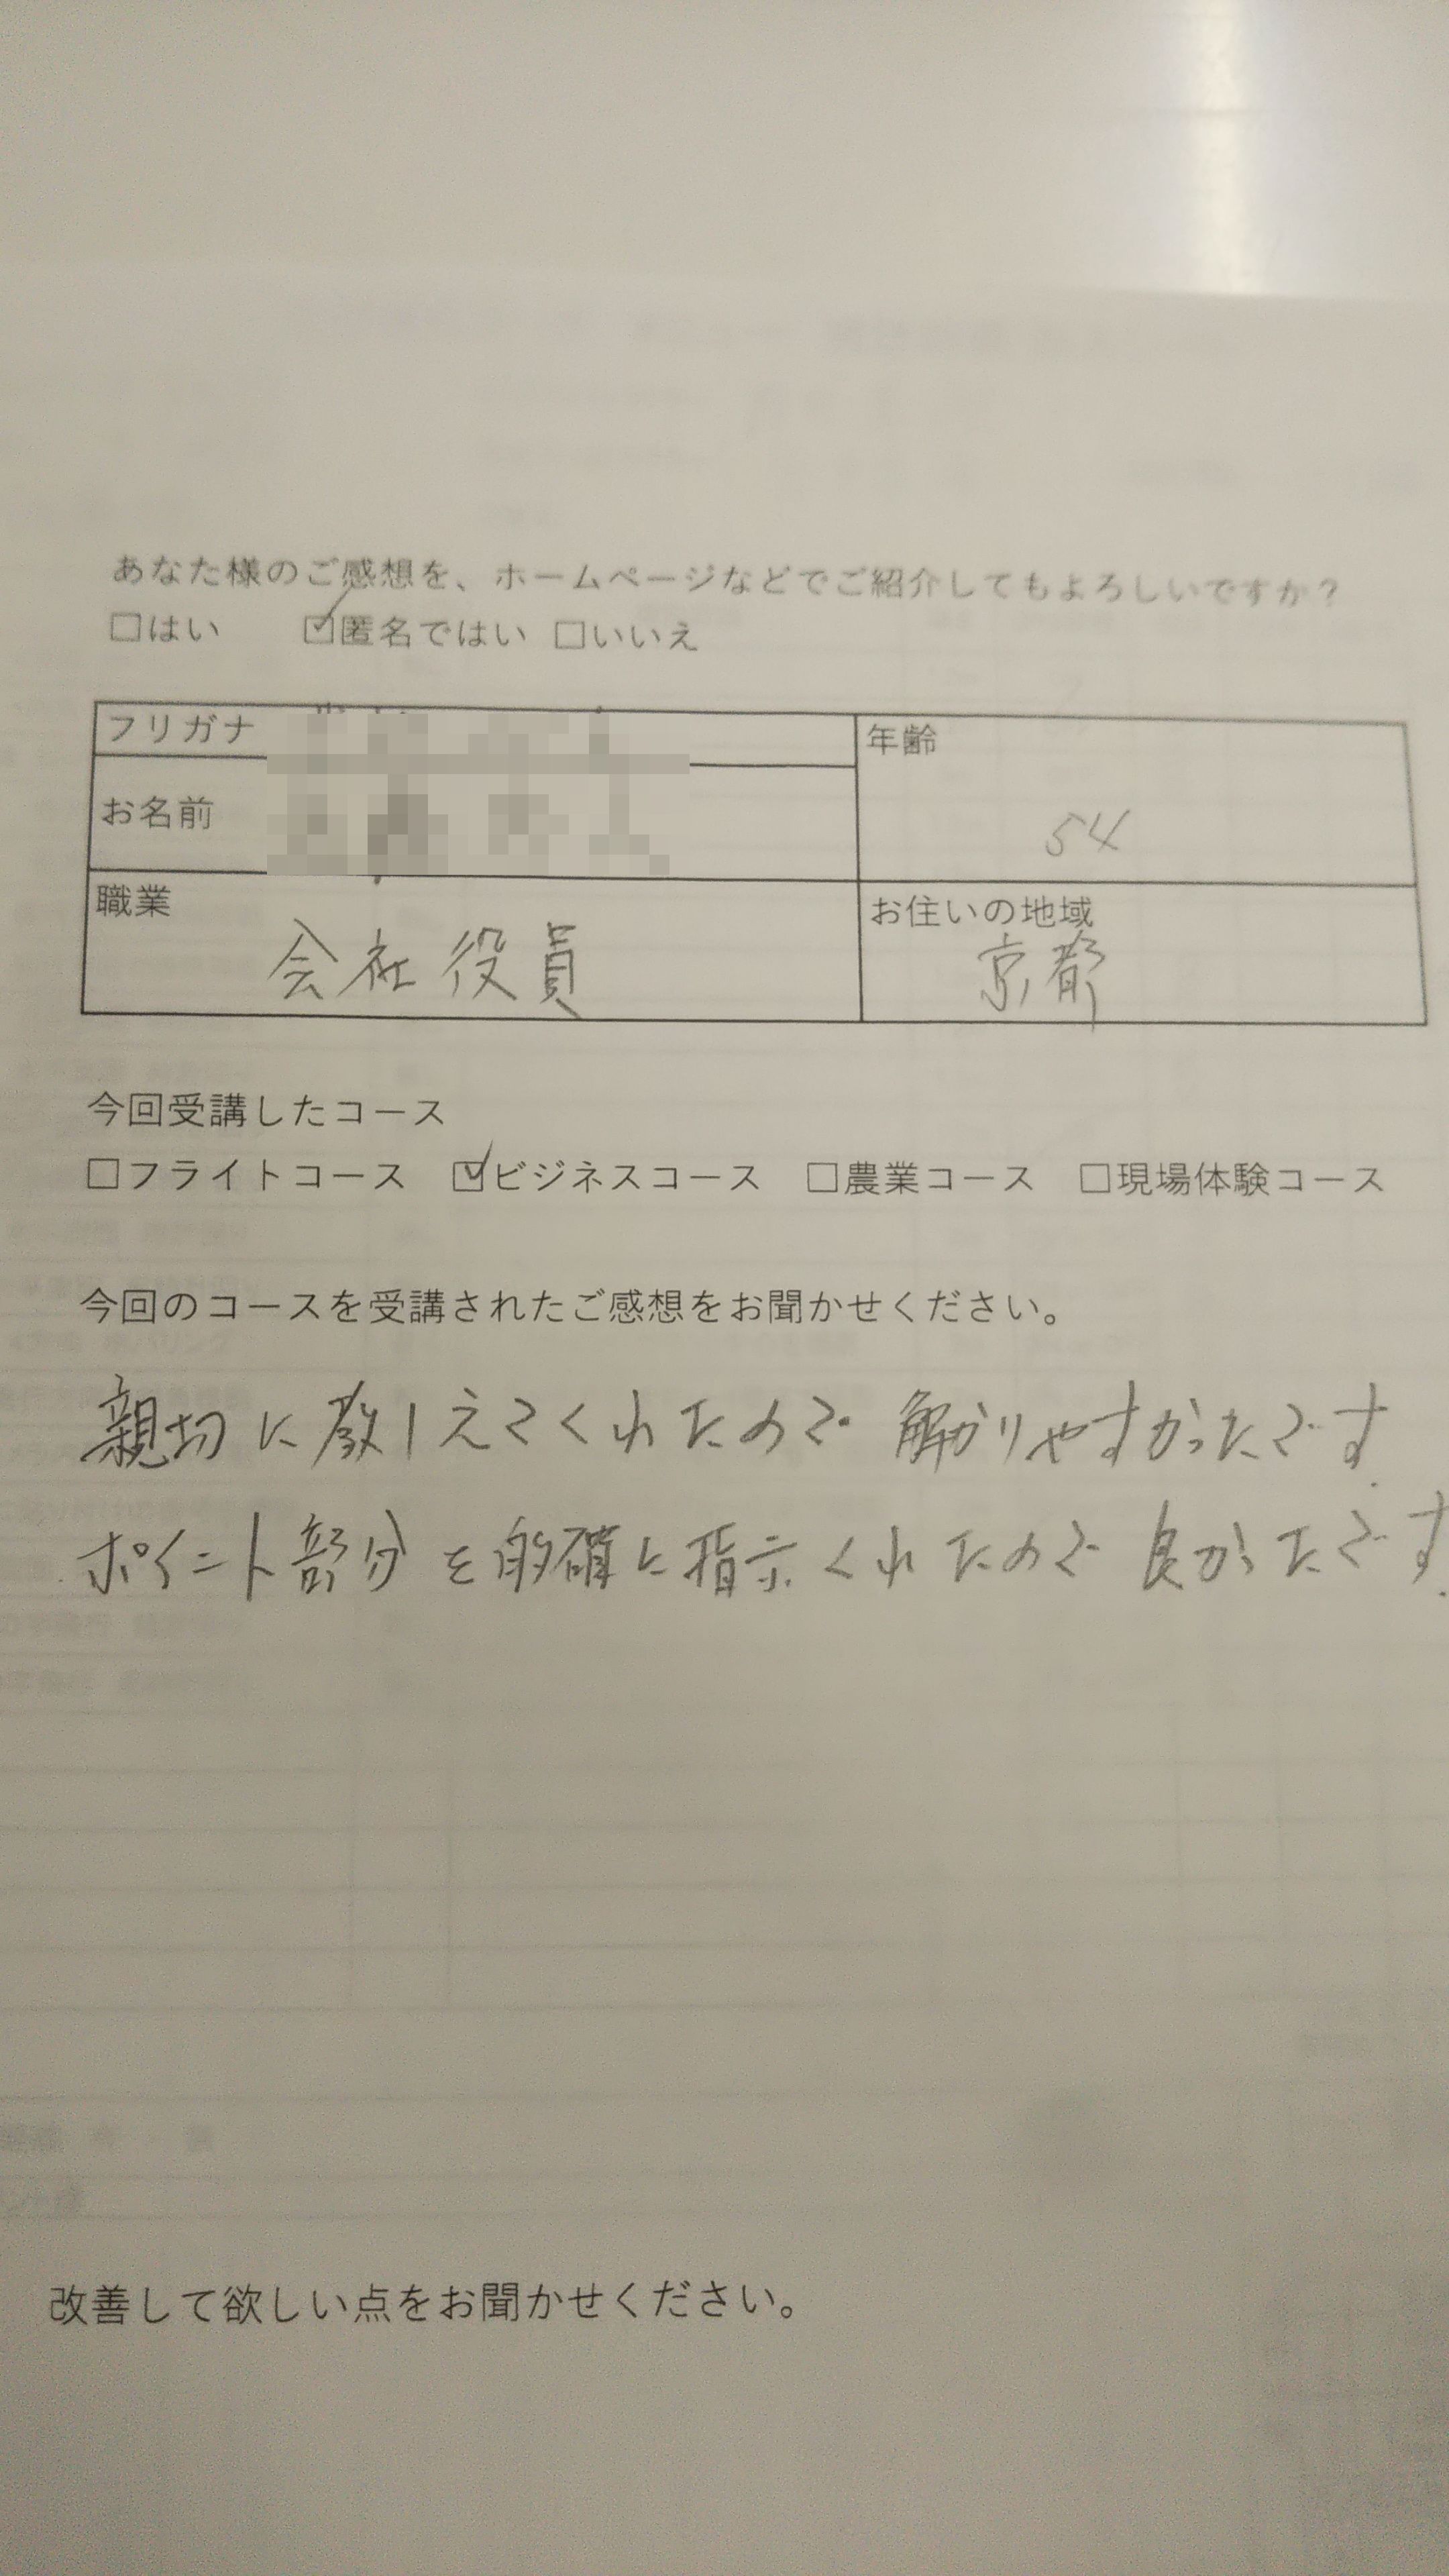 あなた様のご感想を、ホームページなどでご紹介してもよろしいですか？
□はい ☑匿名ではい □いいえ
フリガナ
年齢
お名前
54
職業
お住いの地域
会社役員
京都
今回受講したコース
□フライトコース ☑ビジネスコース □農業コース □現場体験コース
今回のコースを受講されたご感想をお聞かせください。
親切に教えてくれたので解かりやすかったです.
ポイント部分を的確に指示くれたので良かったです.
改善して欲しい点をお聞かせください。